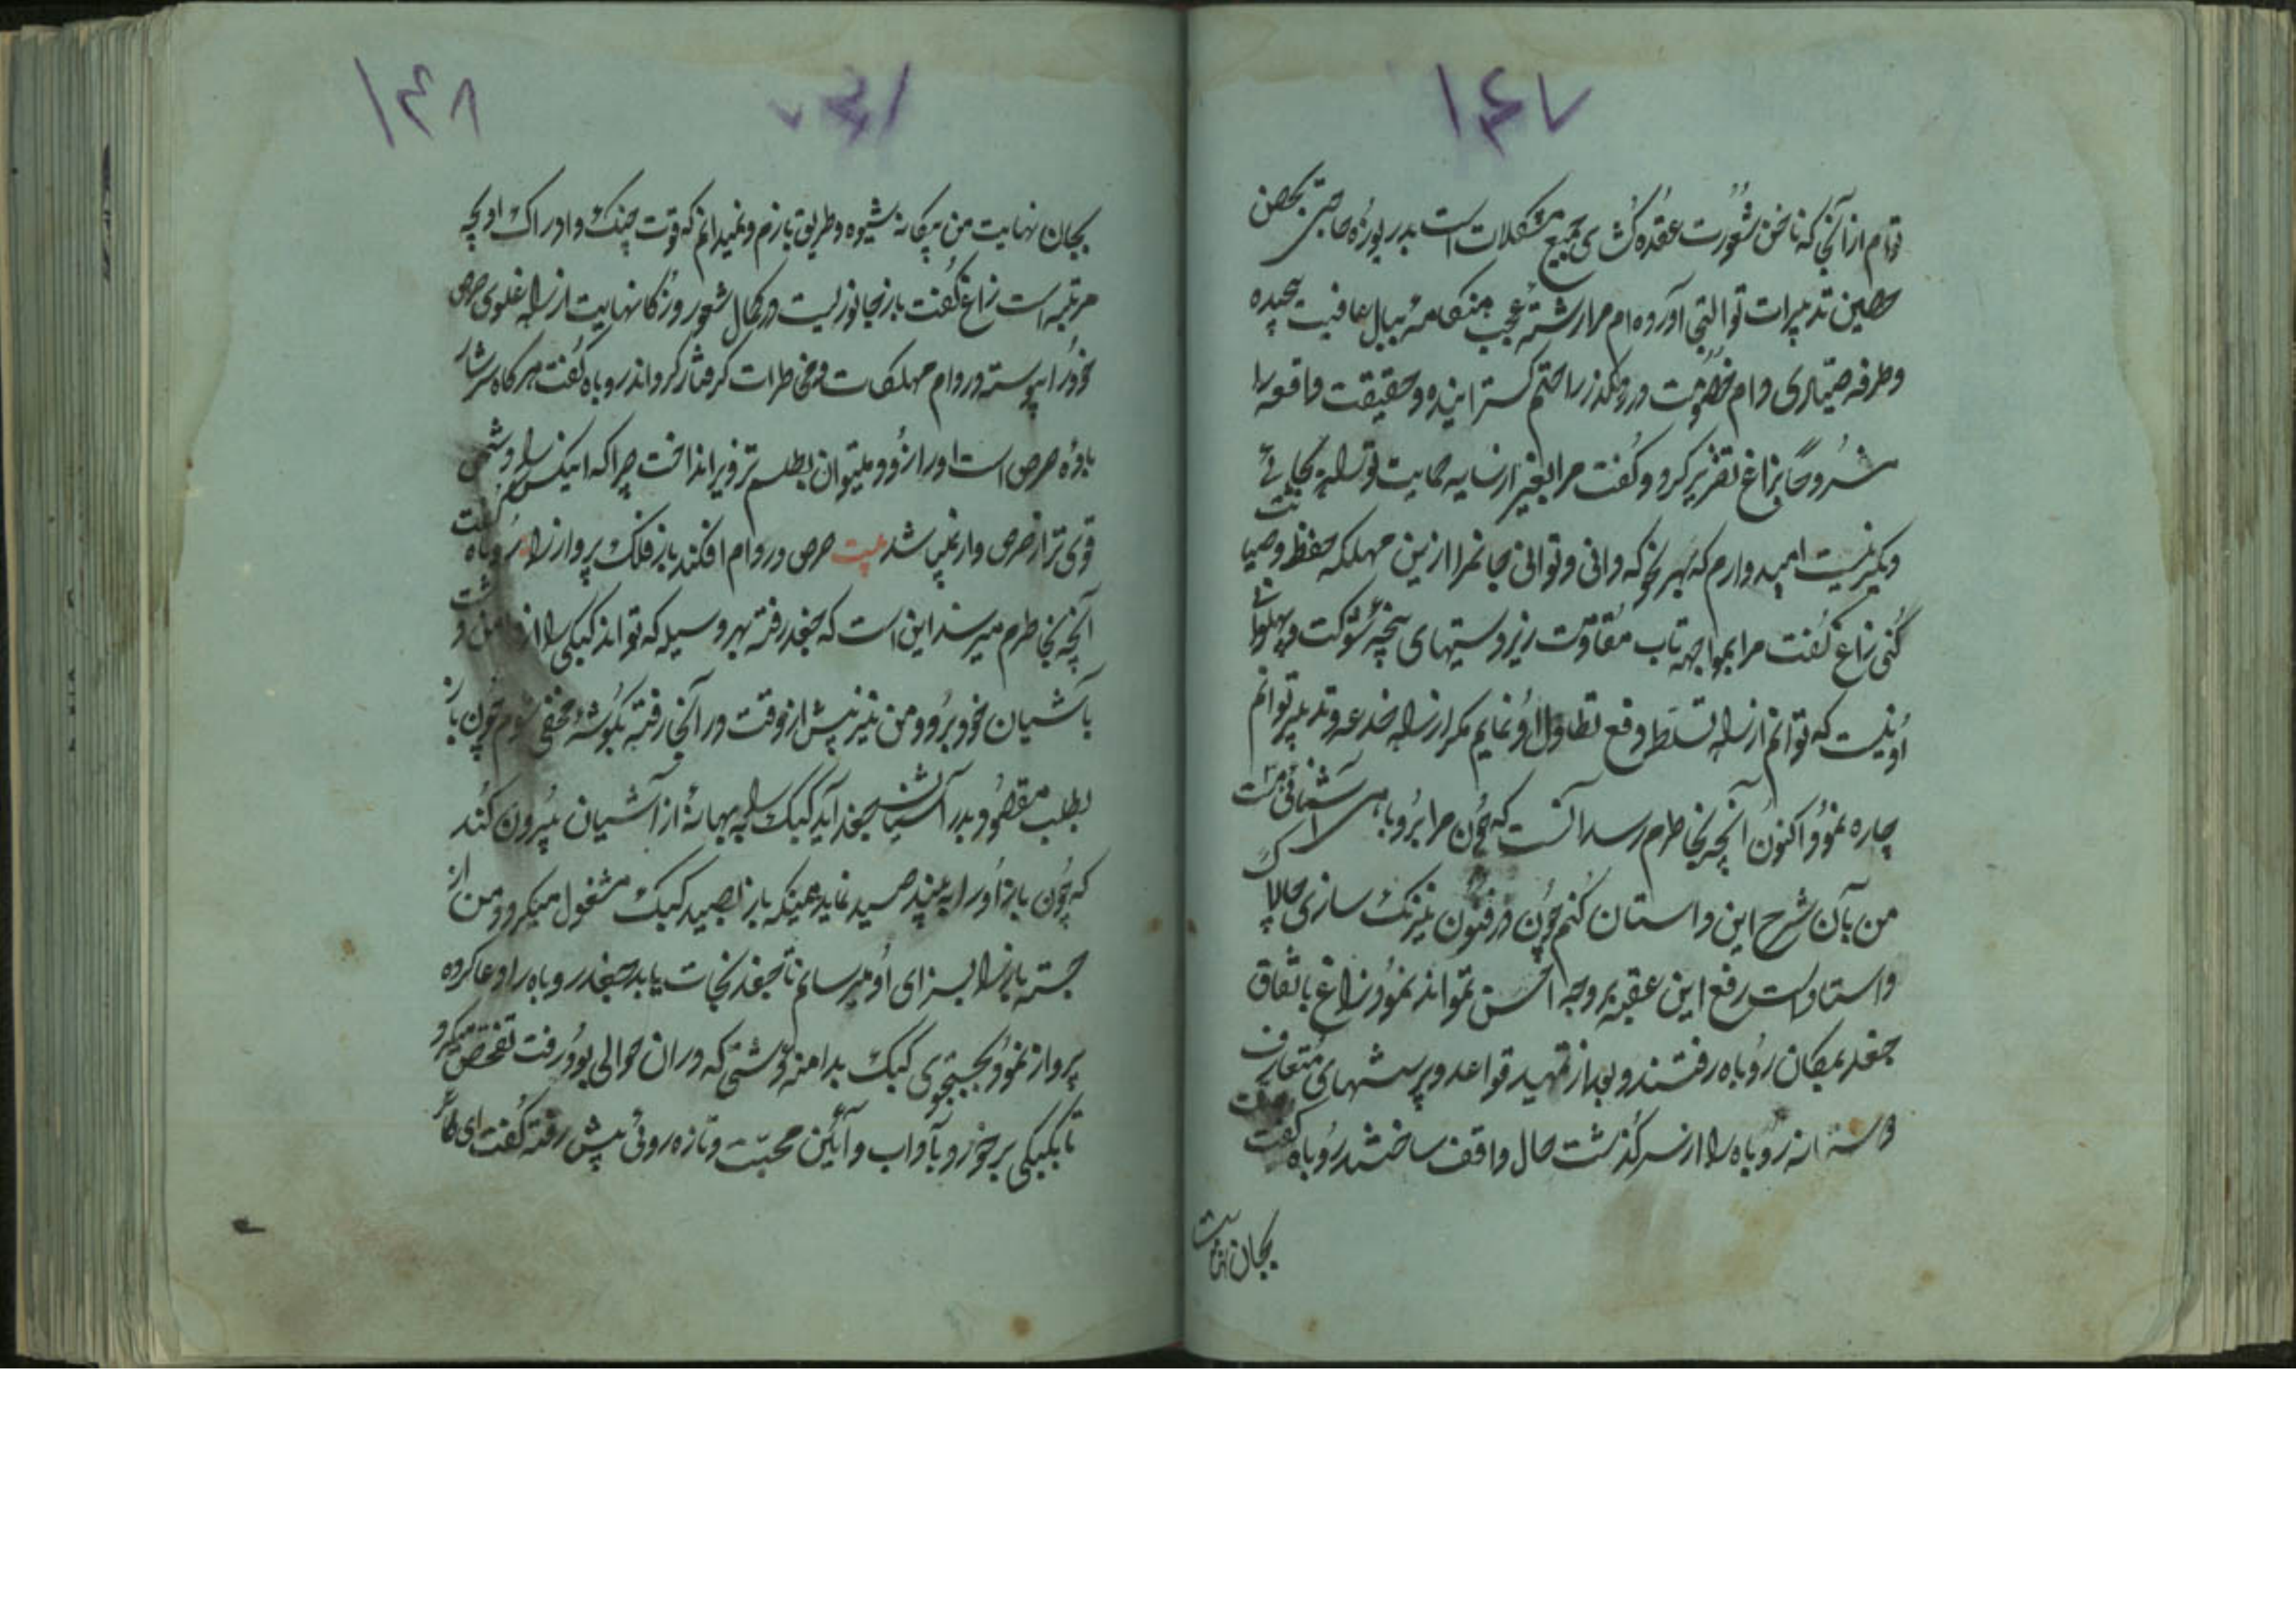 ۱۴۷
توام از آنجا که ناخن شعورت عقده کشای جمیع مشکلات است بدریوزه حاجتی بحصن
حصین تدبیرات تو التجا آورده ام مرا رشته عجب هنگامه ببال عافیت پیچیده
وطرفه صیادی دام خصومت در رهگذر راحتم گسترانیده وحقیقت واقعه را
مشروحا بزاغ تقریر کرد وگفت مرا بغیر از سایه حمایت تو بجائی
دیگر نیست امیدوارم که بهر نحو که دانی وتوانی جانمرا ازین مهلکه حفظ وصیانت
کنی زاغ گفت مرا بمواجهه تاب مقاومت زبردستیهای پنجه شوکت
او نیست که توانم از راه تسلط دفع تطاول او نمایم مگر از راه خدعه وتدبیر توانم
چاره نمود اکنون آنچه بخاطرم رسد آنست که چون مرا بروباهی آشنائی است
من بآن شرح این داستان کنم چون در فنون نیرنگ سازی چالاک
واستاد است رفع این عقبه بروجه احسن تواند نمود زاغ باتفاق
جغد بمکان روباه رفتند وبعد از تمهید قواعد وپرسشهای متعارف
روباه را از سرگذشت حال واقف ساختند روباه گفت
بجان منت
۱۴۷
۱۴۸
بجان نهایت من بیگانه شیوه وطریق بازم ونمیدانم که قوت چنگ وادراک او بچه
مرتبه است زاغ گفت باز جانوریست در کمال شعور وذکا نهایت از راه غلوی حرص
خود را پیوسته در دام مهلکات ومخاطرات گرفتار گرداند روباه گفت هر گاه سرشار
باده حرص است او را زود میتوان بطلسم تزویر انداخت چرا که اینکس را دشمنی
قوی تر از حرص وآز نمیباشد بیت حرص در دام افکند باز فلک پرواز را روباه گفت
آنچه بخاطرم میرسد این است که جغد رفته بهر وسیله که تواند کبکی را از دامن دشت
بآشیان خود برد ومن نیز پیش از وقت در آنجا رفته بگوشه مخفی شوم چون باز
بطلب مقصود بدر آشیانه جغد آید کبک را بچه بهانه از آشیان بیرون کند
که چون باز او را به بیند صید نماید همینکه باز بصید کبک مشغول میگردد من از
جسته باز را بسزای او میرسانم تا جغد نجات یابد جغد روباه را دعا کرده
پرواز نمود بجستجوی کبک بدامنه دشتی که در ان حوالی بود رفت تفحص میکرد
تا بکبکی برخورد بآداب وآئین محبت وتازه روئی پیش رفته گفت ای